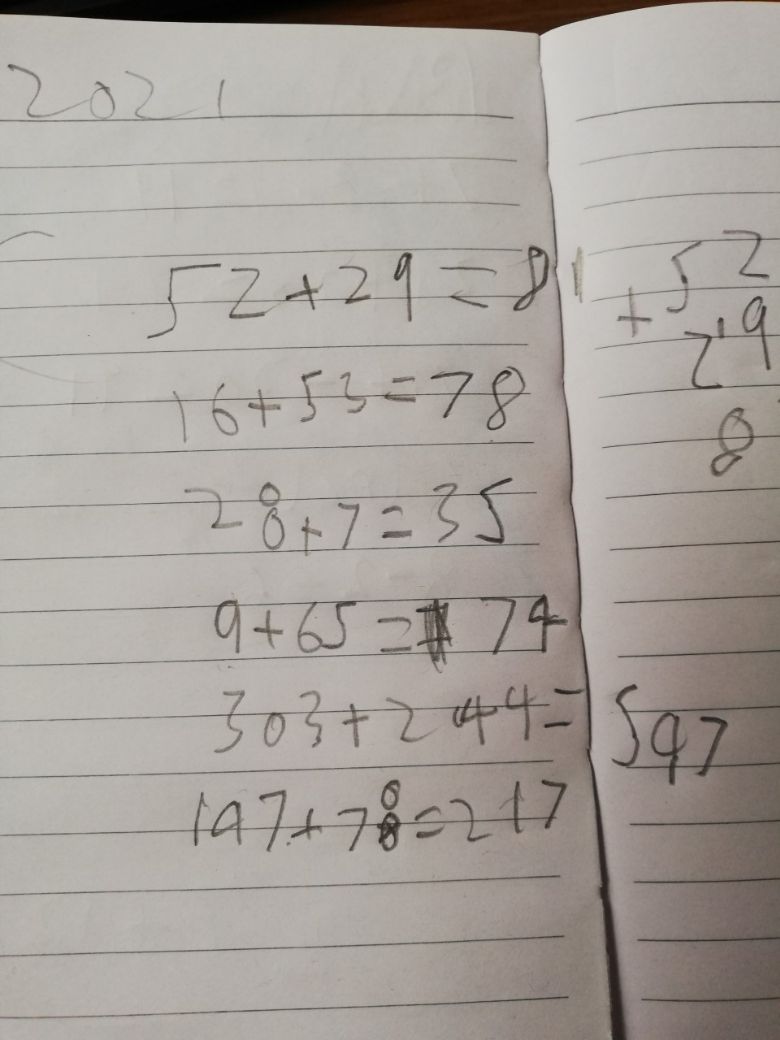 2021
52+29=81
16+53=78
28+7=35
9+65=74
303+244=547
147+78=217
52
+29
8